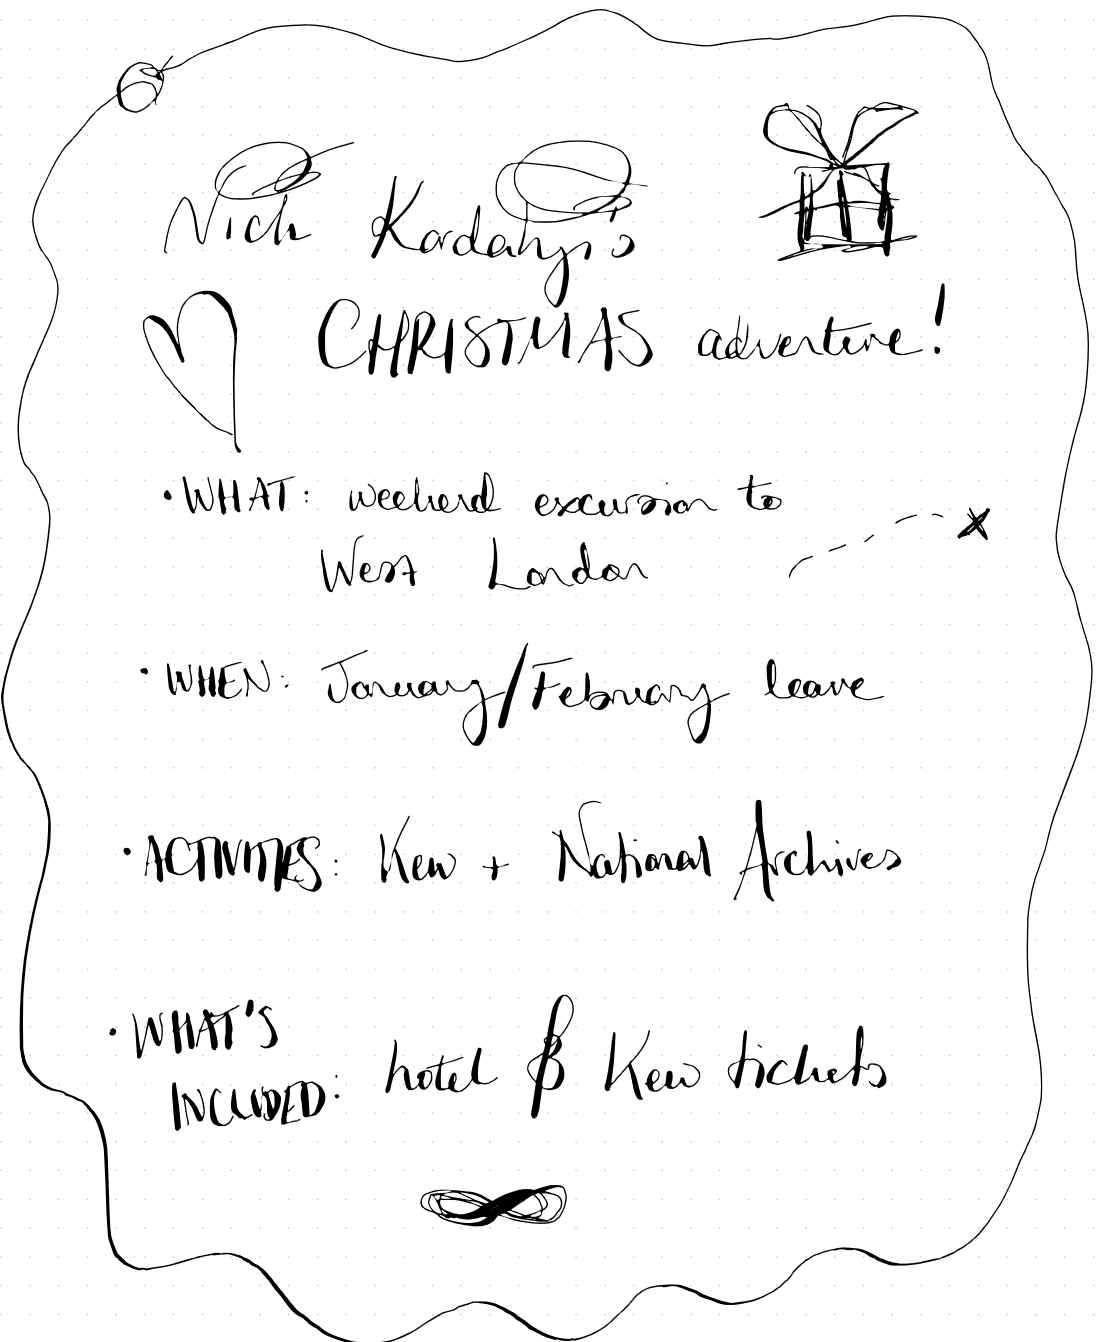 Nick Kardahji's
CHRISTMAS adventure!
• WHAT: weekend excursion to
West London
• WHEN: January/February leave
• ACTIVITIES: Kew + National Archives
• WHAT'S
INCLUDED: hotel & Kew tickets